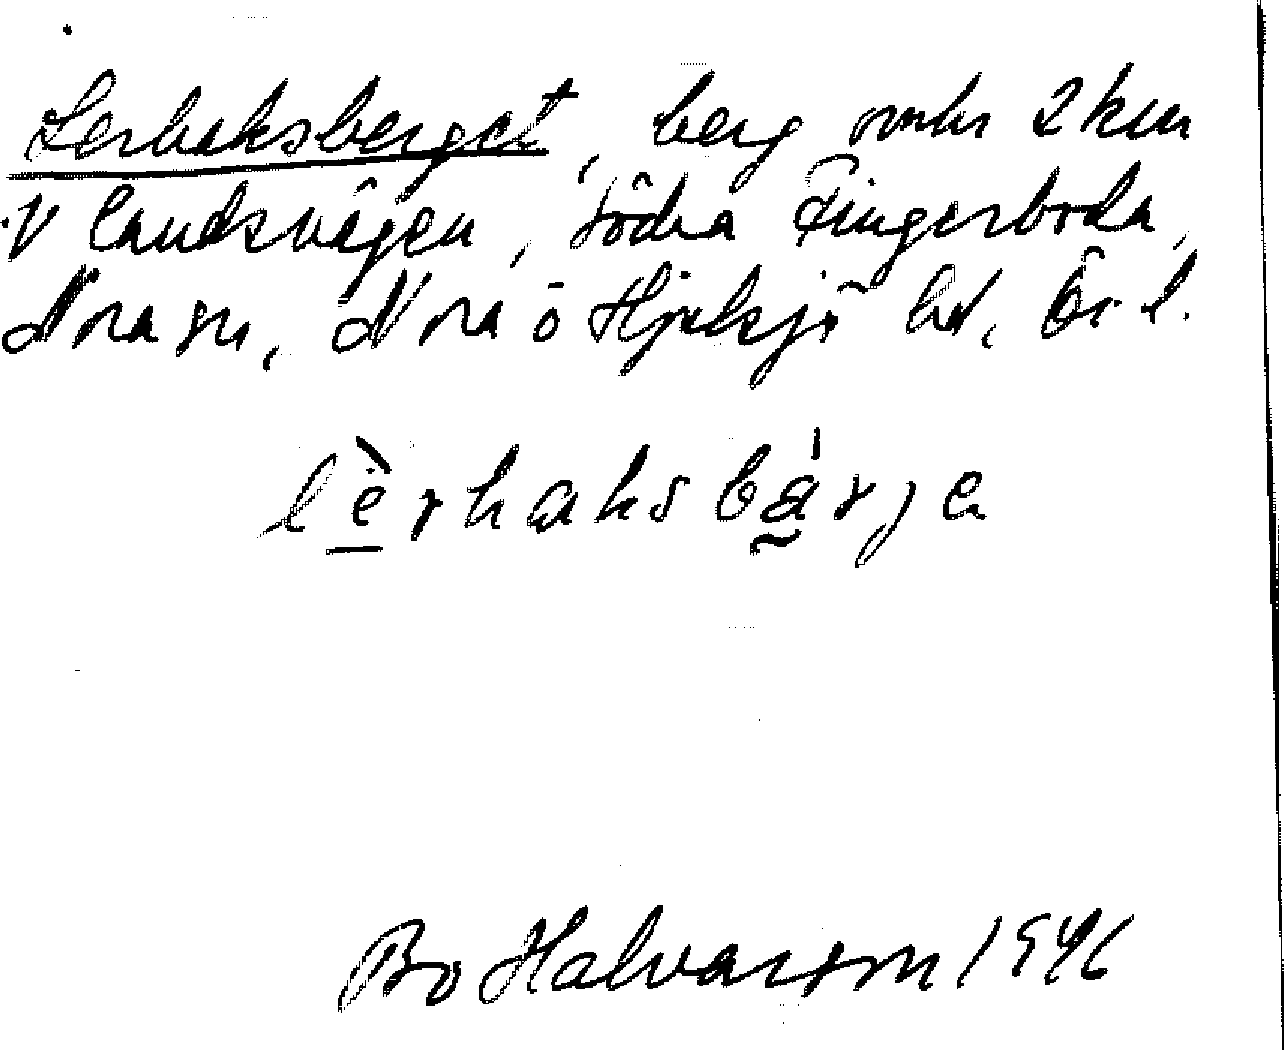 Lerhaksberget, berg omkr 2 km
V landsvägen, Södra Fingerboda,
Nora sn, Nora o Hjulsjö hd, Ör. l.
lèrhaksbárje
Bo Halvarson 1946